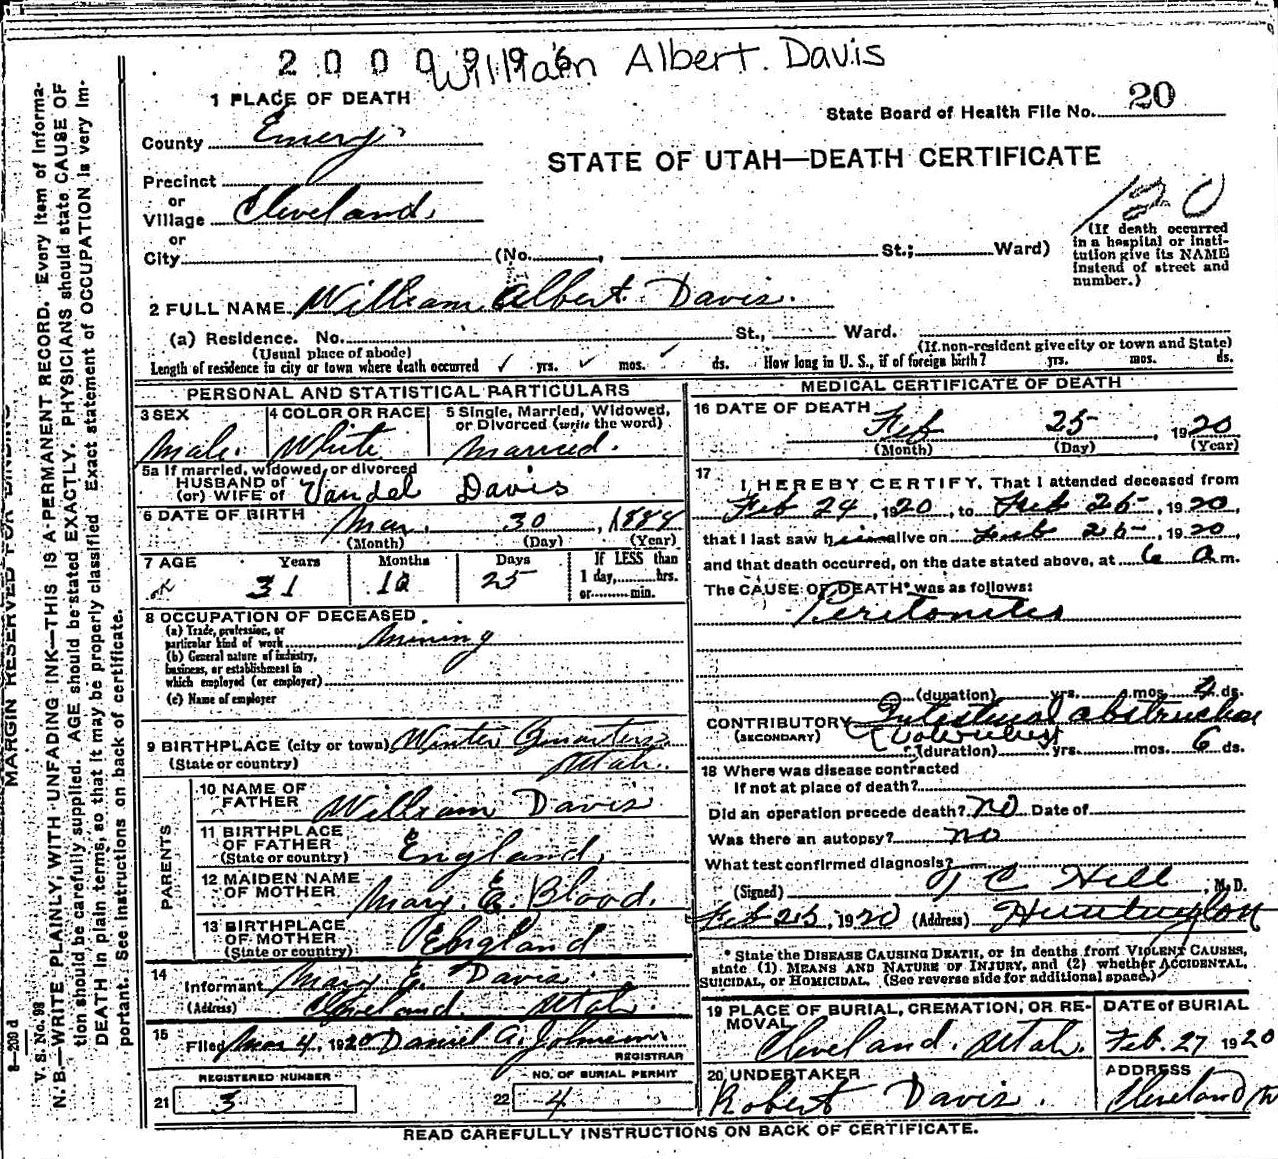 2000996
William Albert. Davis
1 PLACE OF DEATH
State Board of Health File No. 20
County Emery
STATE OF UTAH—DEATH CERTIFICATE
Precinct
or
Village Cleveland.
120
or
City (No. , St.; Ward)
(If death occurred
in a hospital or insti-
tution give its NAME
instead of street and
number.)
2 FULL NAME William Albert Davis.
(a) Residence. No. St., Ward.
(Usual place of abode) (If non-resident give city or town and State)
Length of residence in city or town where death occurred ✓ yrs. ✓ mos. ✓ ds. How long in U. S., if of foreign birth? yrs. mos. ds.
PERSONAL AND STATISTICAL PARTICULARS
3 SEX 4 COLOR OR RACE 5 Single, Married, Widowed,
or Divorced (write the word)
Male. White Married.
5a If married, widowed, or divorced
HUSBAND of
(or) WIFE of Vandel Davis
6 DATE OF BIRTH Mar. 30, 1888
(Month) (Day) (Year)
7 AGE Years Months Days If LESS than
1 day, hrs.
or min.
31 10 25
8 OCCUPATION OF DECEASED.
(a) Trade, profession, or
particular kind of work Mining
(b) General nature of industry,
business, or establishment in
which employed (or employer)
(c) Name of employer
9 BIRTHPLACE (city or town) Winter Quarters
(State or country) Utah.
PARENTS
10 NAME OF
FATHER William Davis
11 BIRTHPLACE
OF FATHER
(State or country) England,
12 MAIDEN NAME
OF MOTHER Mary. E. Blood.
13 BIRTHPLACE
OF MOTHER
(State or country) England
14
Informant Mary E. Davis
(Address) Cleveland. Utah.
15
Filed Mar 4, 1920 Daniel A. Johnson
REGISTRAR
REGISTERED NUMBER NO. OF BURIAL PERMIT
21 3 22 4
MEDICAL CERTIFICATE OF DEATH
16 DATE OF DEATH
Feb 25, 1920
(Month) (Day) (Year)
17
I HEREBY CERTIFY, That I attended deceased from
Feb 24, 1920, to Feb 25, 1920,
that I last saw him alive on Feb 25, 1920
and that death occurred, on the date stated above, at 6 a m.
The CAUSE OF DEATH* was as follows:
Peritonitis
(duration) yrs. mos. 4 ds.
CONTRIBUTORY Intestinal obstruction
(SECONDARY) (Volvulus)
(duration) yrs. mos. 6 ds.
18 Where was disease contracted
If not at place of death?
Did an operation precede death? no Date of
Was there an autopsy? no
What test confirmed diagnosis?
(Signed) J C Hill, M.D.
Feb 25, 1920 (Address) Huntington
* State the DISEASE CAUSING DEATH, or in deaths from VIOLENT CAUSES,
state (1) MEANS AND NATURE OF INJURY, and (2) whether ACCIDENTAL,
SUICIDAL, or HOMICIDAL. (See reverse side for additional space.)
19 PLACE OF BURIAL, CREMATION, OR RE-
MOVAL
Cleveland. Utah.
DATE of BURIAL
Feb. 27 1920
20 UNDERTAKER
Robert Davis.
ADDRESS
Cleveland
READ CAREFULLY INSTRUCTIONS ON BACK OF CERTIFICATE.
MARGIN RESERVED FOR BINDING
N. B.—WRITE PLAINLY, WITH UNFADING INK—THIS IS A PERMANENT RECORD. Every item of Informa-
tion should be carefully supplied. AGE should be stated EXACTLY. PHYSICIANS should state CAUSE OF
DEATH in plain terms, so that it may be properly classified. Exact statement of OCCUPATION is very im-
portant. See instructions on back of certificate.
V. S. No. 98